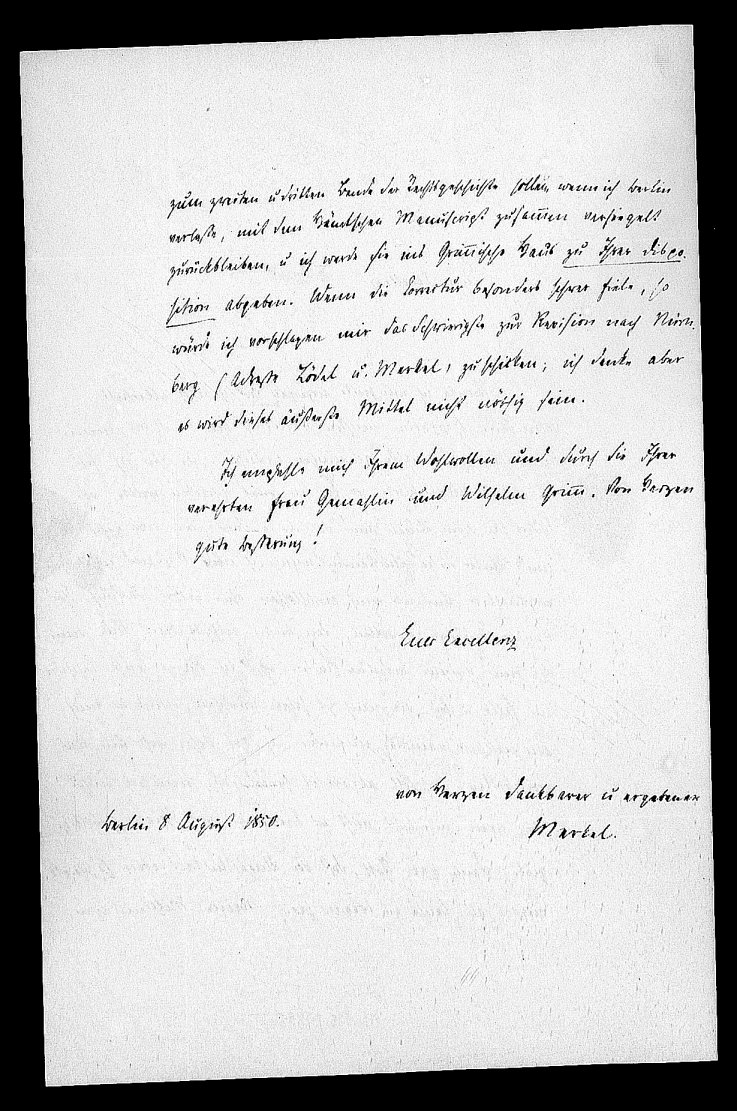 zum zweiten u dritten Bande der Rechtsgeschichte sollen, wenn ich Berlin
verlasse, mit dem Manuscript zusam̄en versiegelt
zurückbleiben, u ich werde sie ins Grim̄ische Haus zu Ihrer Dispo-
sition abgeben. Wenn die Correctur besonders schwer fiele, so
würde ich vorschlagen mir das Schwierigste zur Revision nach Nürn-
berg (Adresse Lödel u. Merkel) zu schicken; ich denke aber
es wird dieses äußerste Mittel nicht nöthig sein.
Ich empfehle mich Ihrem Wohlwollen und durch Sie Ihrer
verehrten Frau Gemahlin und Wilhelm Grim̄. Von Herzen
gute Besserung!
Euer Excellenz
von Herzen dankbarer u ergebener
Berlin 8 August 1850.
Merkel.